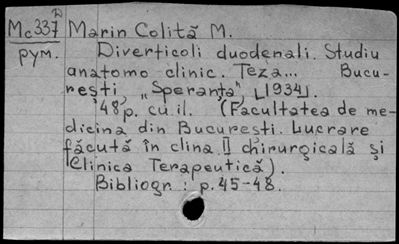 Mc337 Marin Colită M.
рум. Diverticoli duodenali. Studiu
anatomo clinic. Teza... Bucu-
rești „Speranța" [1934].
48 p. cu il. (Facultatea de me-
dicina din București. Lucrare
făcută în clina II chirurgicală și
Clinica Terapeutică).
Bibliogr.: p. 45-48.